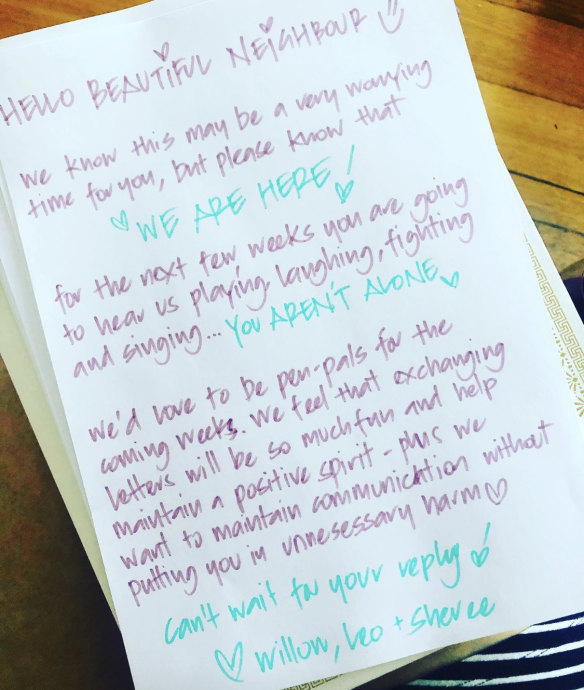 HELLO BEAUTIFUL NEIGHBOUR
we know this may be a very worrying
time for you, but please know that
WE ARE HERE!
for the next few weeks you are going
to hear us playing, laughing, fighting
and singing... YOU AREN'T ALONE
we'd love to be pen-pals for the
coming weeks. We feel that exchanging
letters will be so much fun and help
maintain a positive spirit - plus we
want to maintain communication without
putting you in unnesessary harm
can't wait for your reply!
willow, Leo + Sheree